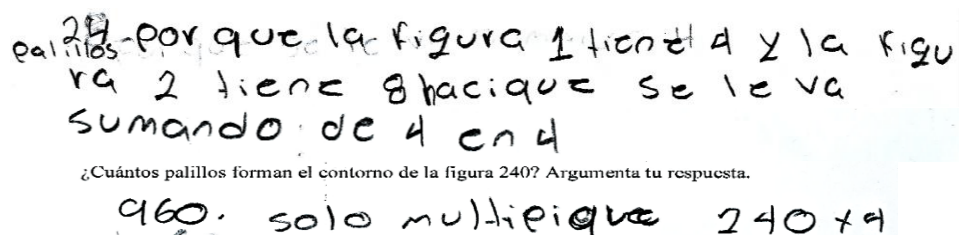 24 palillos-por que la figura 1 tiene 4 y la figu
ra 2 tiene 8 hacique se le va
sumando de 4 en 4
¿Cuántos palillos forman el contorno de la figura 240? Argumenta tu respuesta.
960. solo multipique 240 x 4